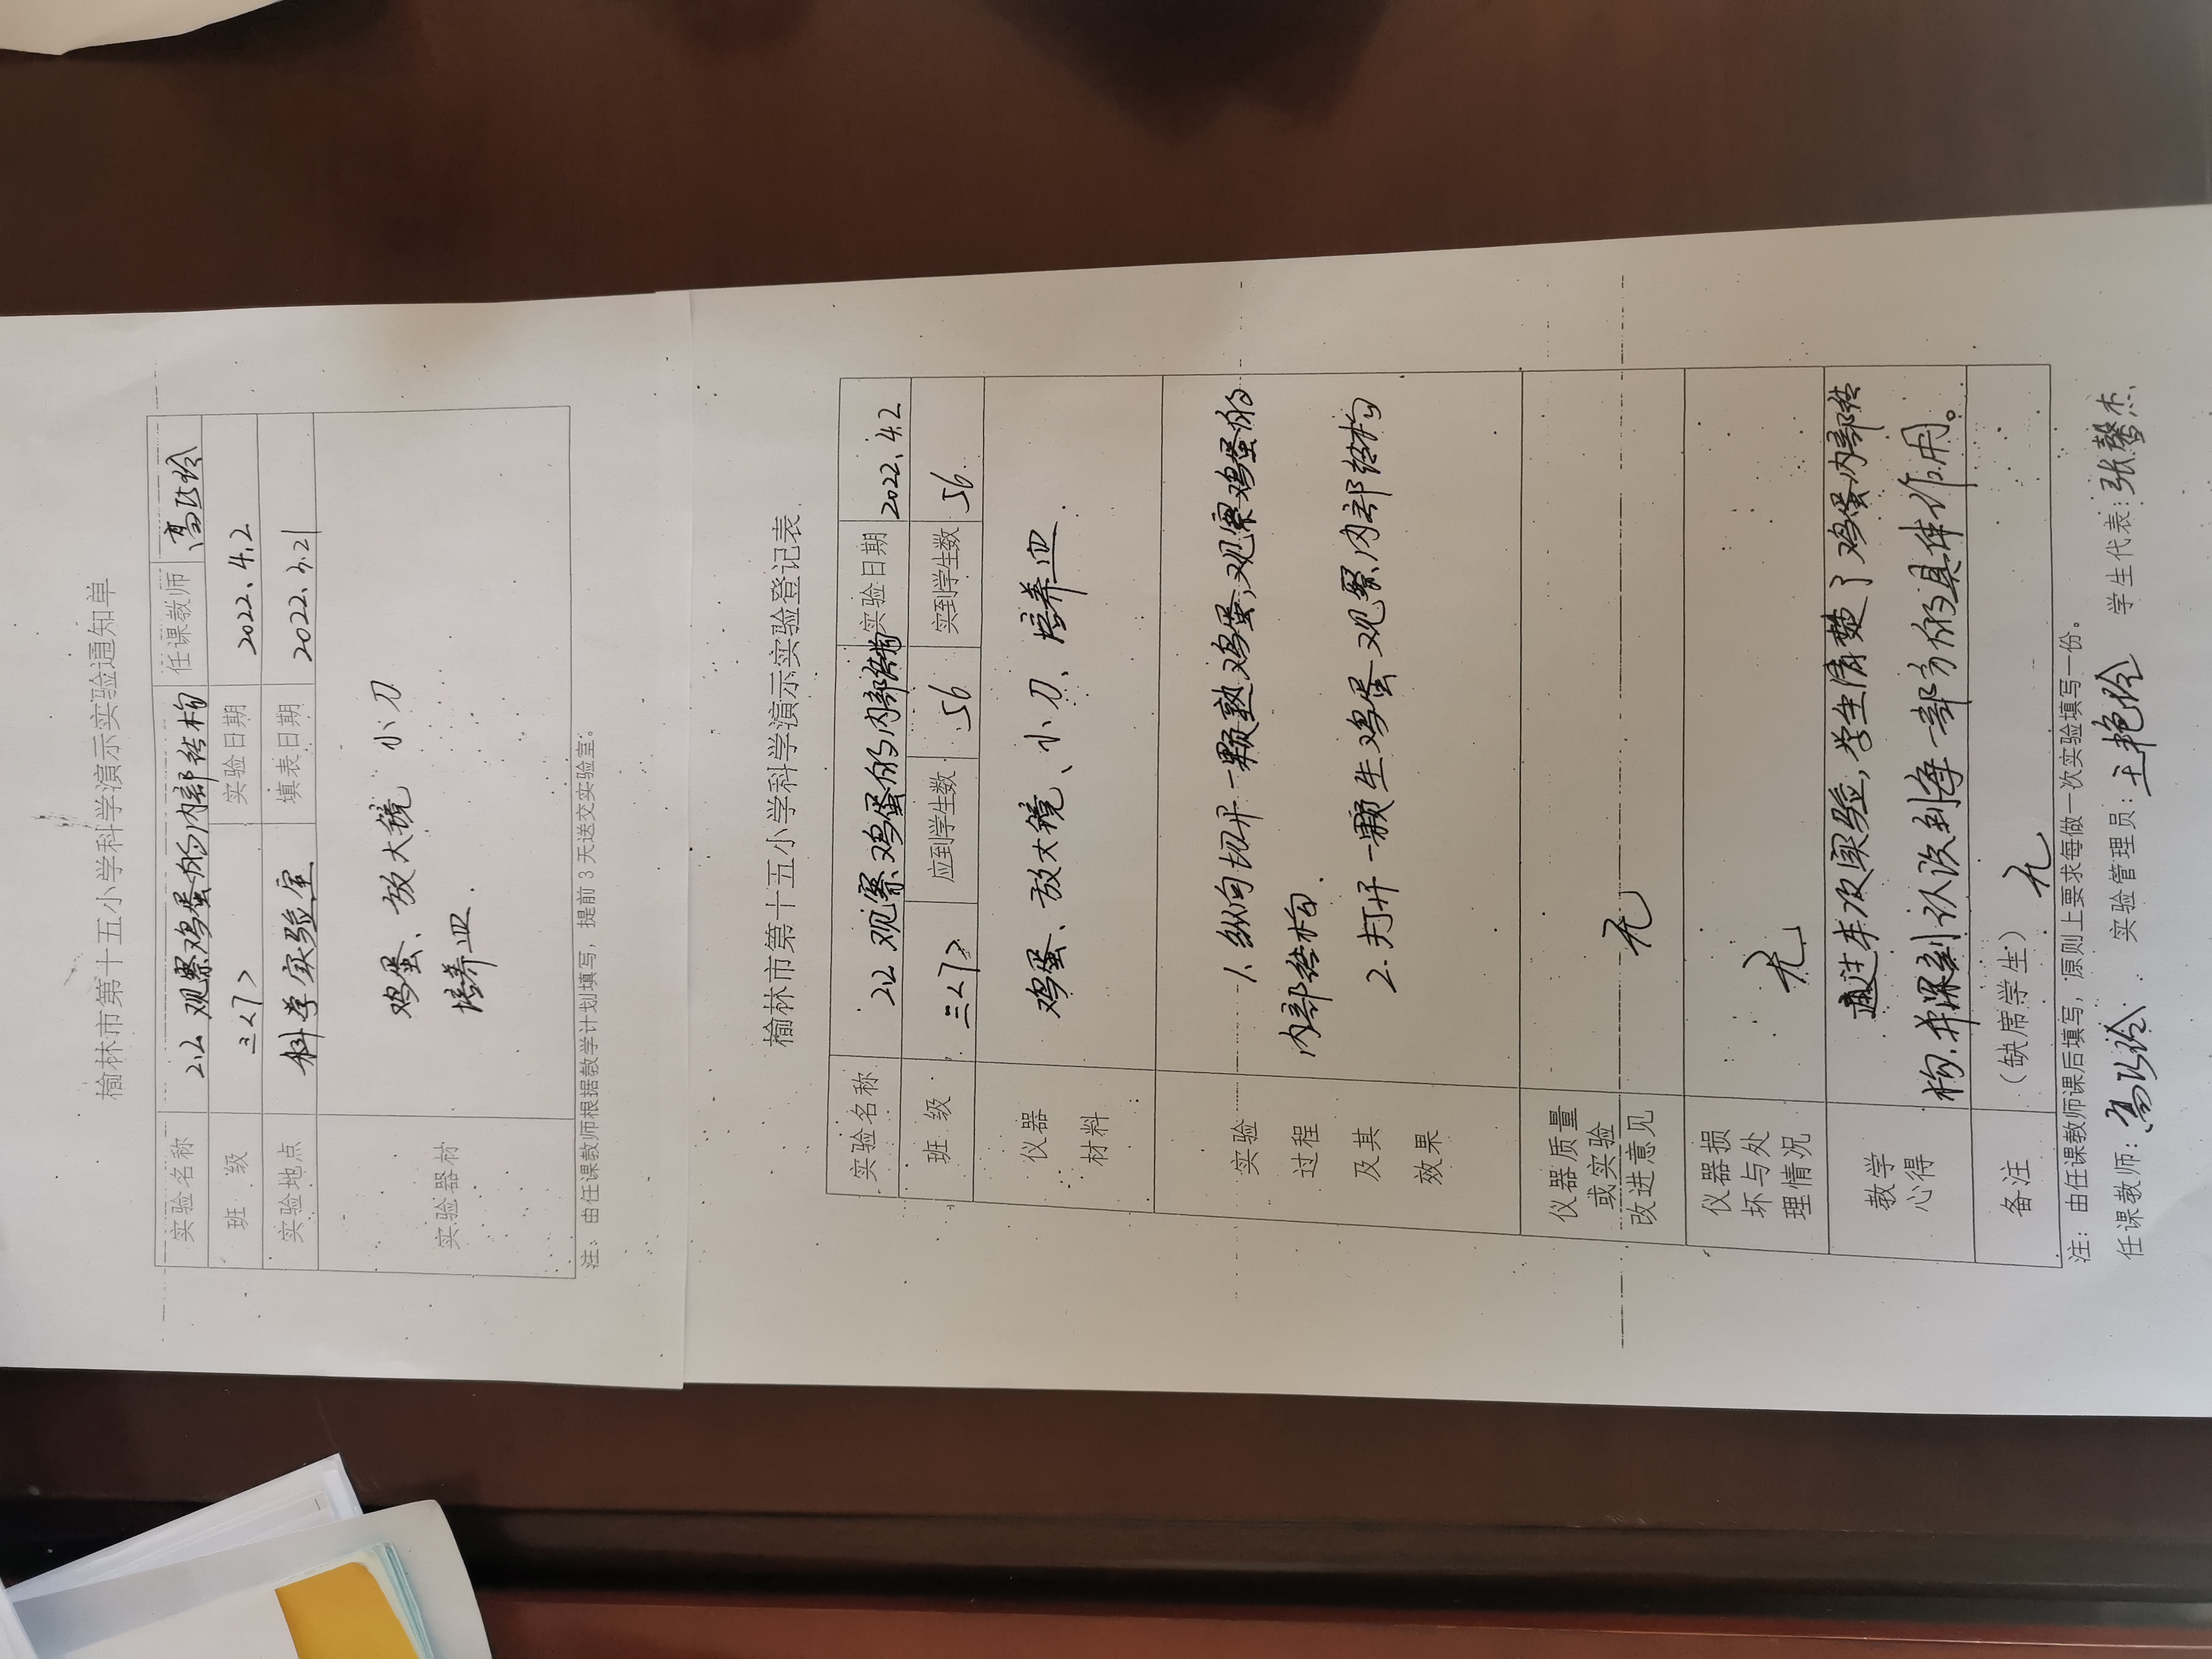 榆林市第十五小学科学演示实验通知单
实验名称 2.2 观察鸡蛋的内部结构 任课教师
班 级 三<1> 实验日期 2022.4.2
实验地点 科学实验室 填表日期 2022.3.21
实验器材 鸡蛋、放大镜 小刀
培养皿.
注：由任课教师根据教学计划填写，提前 3 天送交实验室。
榆林市第十五小学科学演示实验登记表
实验名称 2.2 观察鸡蛋的内部结构 实验日期 2022.4.2
班 级 三<1> 应到学生数 56 实到学生数 56
仪器
材料
鸡蛋、放大镜、小刀、培养皿.
实验
过程
及其
效果
1.纵向切开一颗熟鸡蛋,观察鸡蛋的
内部结构.
2.打开一颗生鸡蛋观察内部结构
仪器质量
或实验
改进意见
无
仪器损
坏与处
理情况
无
教学
心得
通过本次实验,学生清楚了鸡蛋内部结
构.并深刻认识到每一部分的具体作用。
备注 （缺席学生） 无
注：由任课教师课后填写，原则上要求每做一次实验填写一份。
任课教师: 实验管理员: 王艳玲 学生代表: 张馨杰